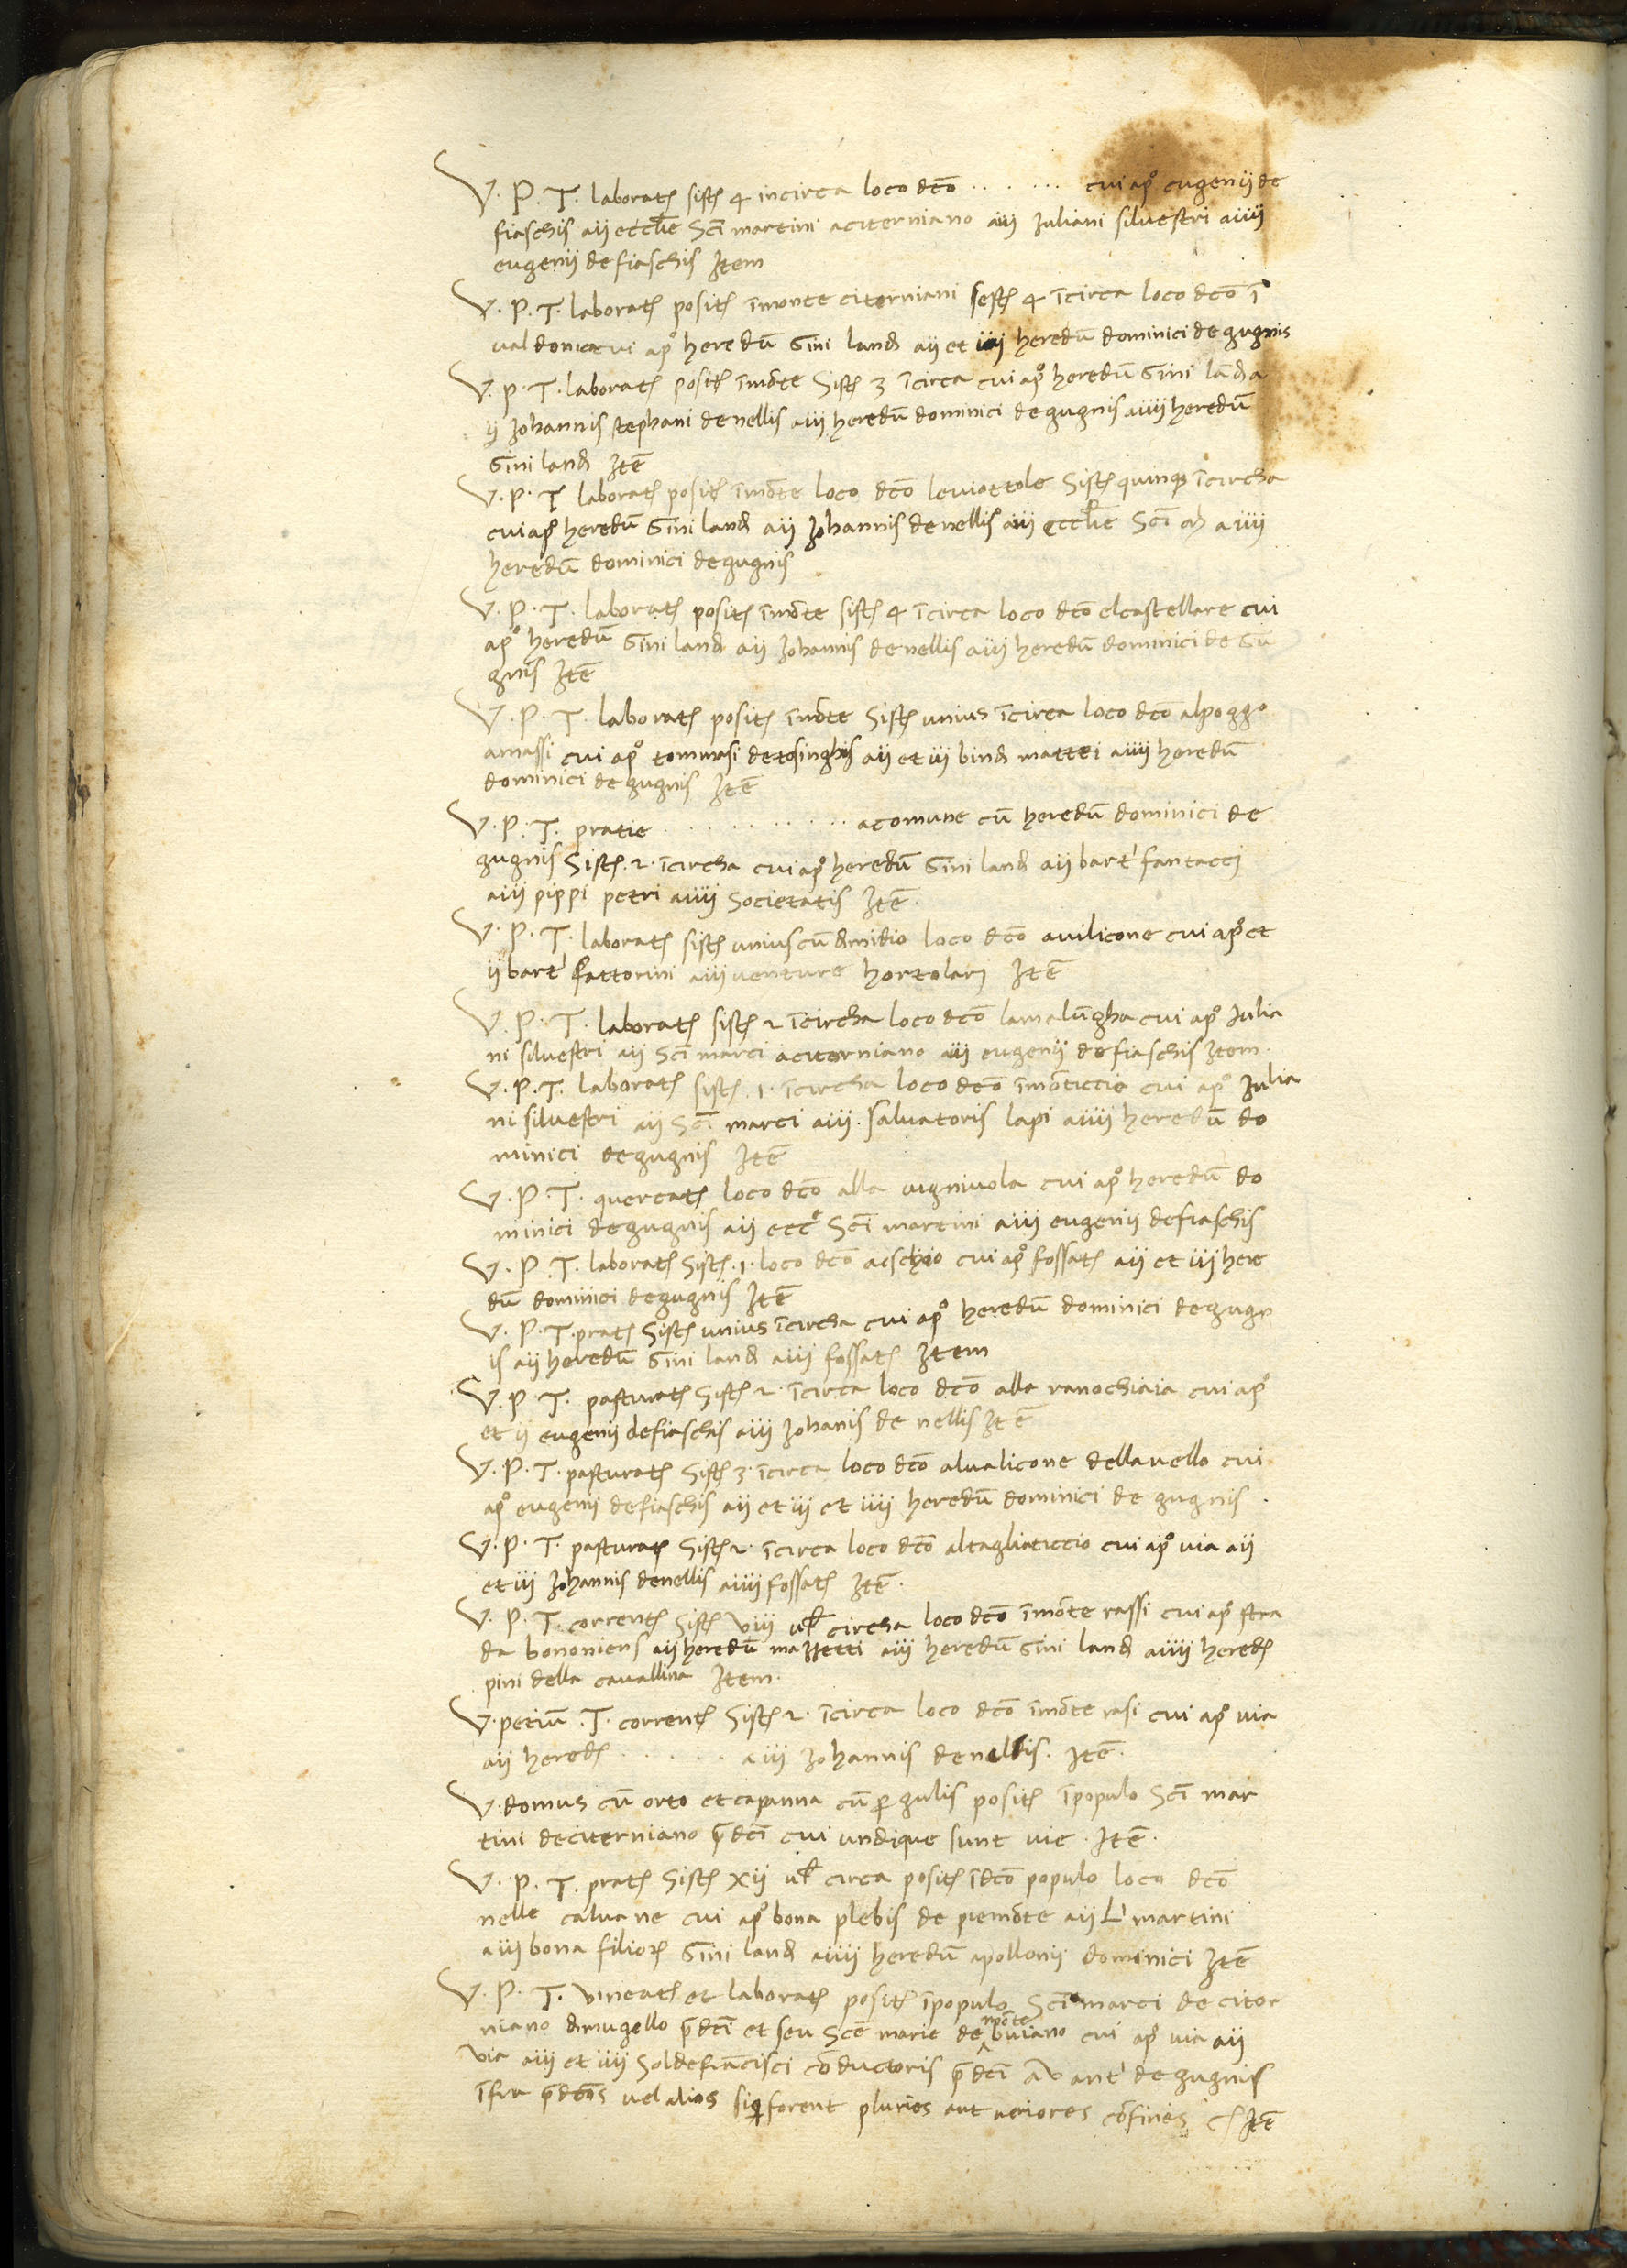 V. P. T. laborat. sist. 4 incirca loco dco ....... cui apo eugenii de
fiaschis aij ecclie Sci martini aciterniano aiij Juliani silvestri aiiij
eugenii de fiaschis Item
V. P. T. laborat. posit. imonte citerniani sest. 4 icirca loco dco i
valdonica cui apo heredu Gini land. aij et iiij heredu dominici de gugnis
V. P. T. laborat. posit. imote Sist. 3 icirca cui apo heredu Gini lada
ij Johannis stephani de nellis aiij heredu dominici de gugnis aiiij heredu
Gini land. Ite
V. P. T laborat. posit. imote loco dco leviottole Sist. quinq. icircha
cui apo heredu Gini land. aij Johannis de nellis aiij ecclie Sci aiiij
heredu dominici de gugnis
V. P. T. laborat. posit. imote sist. 4 icirca loco dco elcastellare cui
apo heredu Gini land. aij Johannis de nellis aiij heredu dominici de Gu
gnis Ite
V. P. T. laborat. posit. imote Sist. unius icirca loco dco alpoggo
amassi cui apo tommasi detosinghis aij et iij bind. mattei aiiij heredu
dominici de gugnis Ite
V. P. T. pratie .......... acomune cu heredu dominici de
gugnis Sist. 2. icircha cui apo heredu Gini land. aij bart' fantacci
aiij pippi petri aiiij Societatis Ite.
V. P. T. laborat. sist. unius cu dimidio loco dco avilicone cui apo et
ij bart' fattorini aiij venture hortolari Ite
V. P. T. laborat. sist. 2 icircha loco dco lamalugha cui apo Julia
ni silvestri aij Sci marci aciterniano aiij eugenii de fiaschis Item.
V. P. T. laborat. sist. 1. icircha loco dco imoticcio cui apo Julia
ni silvestri aij Sci marci aiij. Salvatoris lapi aiiij heredu do
minici de gugnis Ite
V. P. T. quercat. loco dco alla vignivola cui apo heredu do
minici de gugnis aij ecce Sci martini aiij eugenii defiaschis
V. P. T. laborat. Sist. 1. loco dco aischio cui apo fossat. aij et iij here
du dominici degugnis Ite
V. P. T. prat. Sist. unius icircha cui apo heredu dominici de gugn
is aij heredu Gini land. aiij fossat. Item
V. P. T. pasturat. Sist. 2. icirca loco dco alla ranochiaia cui apo
et ij eugenii defiaschis aiij Johanis de nellis Ite
V. P. T. pasturat. Sist. 3. icirca loco dco alvalicone dellavello cui
apo eugenii defiaschis aij et iij et iiij heredu dominici de gugnis.
V. P. T. pasturat. Sist. 2. icirca loco dco altagliaticcio cui apo via aij
et iij Johannis denellis aiiij fossat. Ite.
V. P. T. corrent. Sist. viij vl circha loco dco imote rassi cui apo stra
da bononiens aij heredu mazzetti aiij heredu Gini land. aiiij hered.
pini della cavallina Item.
V. petium. T. corrent. Sist. 2. icirca loco dco imote rasi cui apo via
aij hered. ...... aiij Johannis denellis. Ite.
V. domus cu orto et capanna cu pgulis posit. ipopulo Sci mar
tini deciterniano pdci cui undique sunt vie. Ite.
V. P. T. prat. Sist. xij vl circa posit. idco populo loco dco
nelle calvane cui apo bona plebis de piemote aij L' martini
aiij bona filior. Gini land. aiiij heredu apollonii dominici Ite
V. P. T. vineat. et laborat. posit. ipopulo Sci marci de citer
niano dimugello pdci et seu Sce marie de mote buiano cui apo via aij
via aiij et iiij Sol defracisci coductoris pdci av ant' de gugnis
ifra pdcos vel alios siqi forent pluries aut veriores cofines Ite